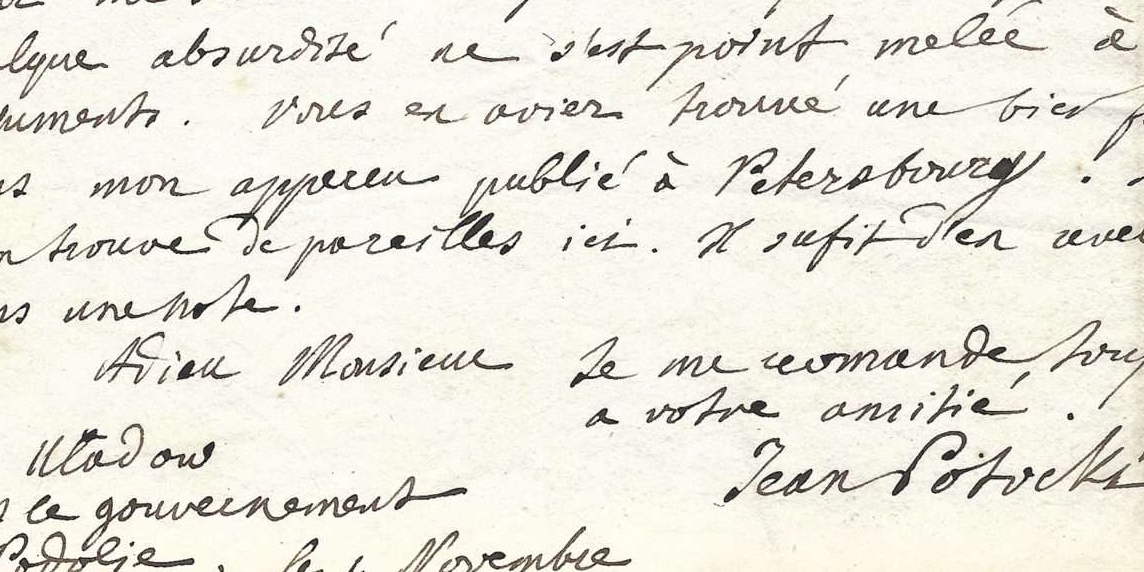 lque absurdité ne s'est point melée à
uments. Vous en aviez trouvé une bien f
ns mon apperçu publié à Petersbourg.
n trouve de pareilles ici. Il sufit d'en aver
ns une note.
Adieu Monsieur Je me recomande touj
a votre amitié.
Uladow
le gouvernement
Jean Potocki
Podolie, le Novembre